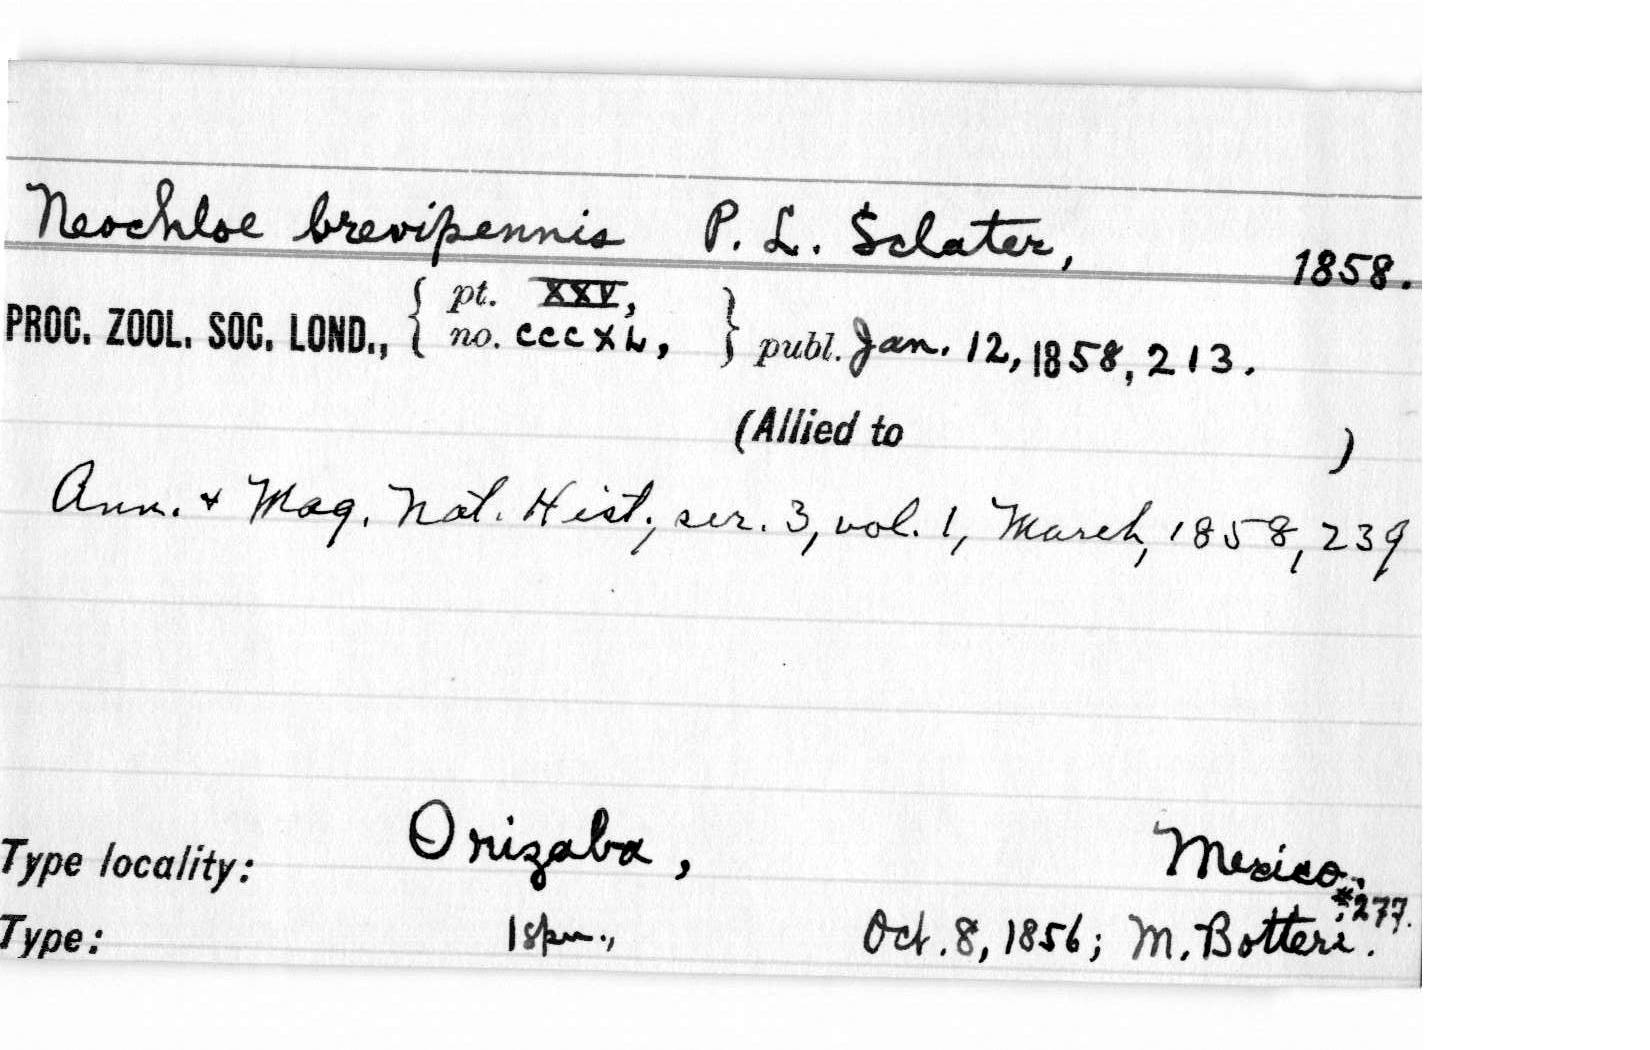 Neochloe brevipennis P. L. Sclater, 1858.
PROC. ZOOL. SOC. LOND., { pt. XXV, no. cccxL, } publ. Jan. 12, 1858, 213.
(Allied to )
Ann. + Mag. Nat. Hist., ser. 3, vol. 1, March, 1858, 239
Type locality: Orizaba, Mexico.
#277.
Type: 1 spm., Oct. 8, 1856; M. Botteri.